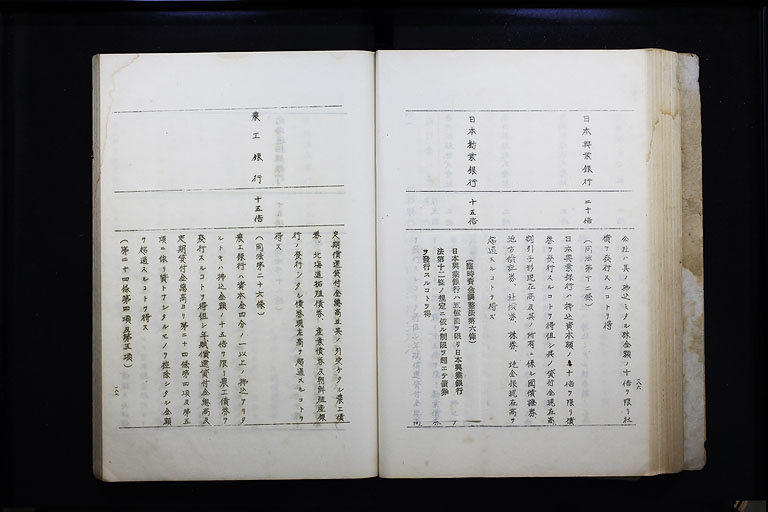 公社ハ其ノ拂込ミタル株金額ノ十倍ヲ限リ社
債ヲ發行スルコトヲ得
日本興業銀行
二十倍
(同法第十二條)
日本興業銀行ハ拂込資本額ノ二十倍ヲ限リ債
券ヲ發行スルコトヲ得但シ其ノ貸付金現在高
割引手形現在高及其ノ所有ニ係ル國債證券
地方債證券、社債券、株券、地金銀現在高ヲ
超過スルコトヲ得ズ
日本勸業銀行
十五倍
(臨時資金調整法第六條)
日本興業銀行ハ五億圓ヲ限リ日本興業銀行
法第十二條ノ規定ニ依ル制限ヲ超エテ債券
ヲ發行スルコトヲ得
定期償還貸付金總高並其ノ引受ケタル農工債
券、北海道拓殖債券、産業債券及朝鮮殖産銀
行ノ發行シタル債券現在高ヲ超過スルコトヲ
得ズ
農工銀行
十五倍
(同法第二十六條)
農工銀行ハ資本金四分ノ一以上ノ拂込アリタ
ルトキハ拂込金額ノ十五倍ヲ限リ農工債券ヲ
發行スルコトヲ得但シ年賦償還貸付金總高及
定期貸付金總高ヨリ第二十四條第四項及第五
項ニ依リ貸トアシタルモノヲ控除シタル金額
ヲ超過スルコトヲ得ズ
(第二十四條第四項及第五項)